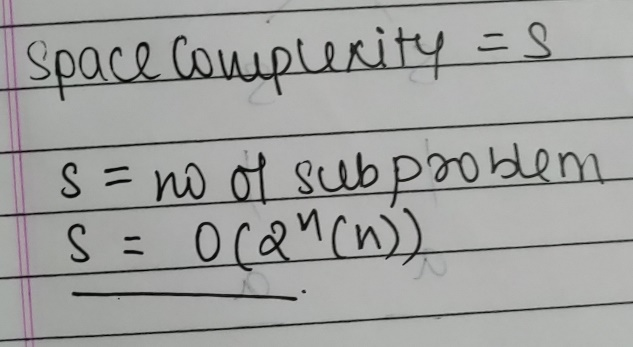 Space Complexity = S
S = no of subproblem
S = O(2ⁿ(n))